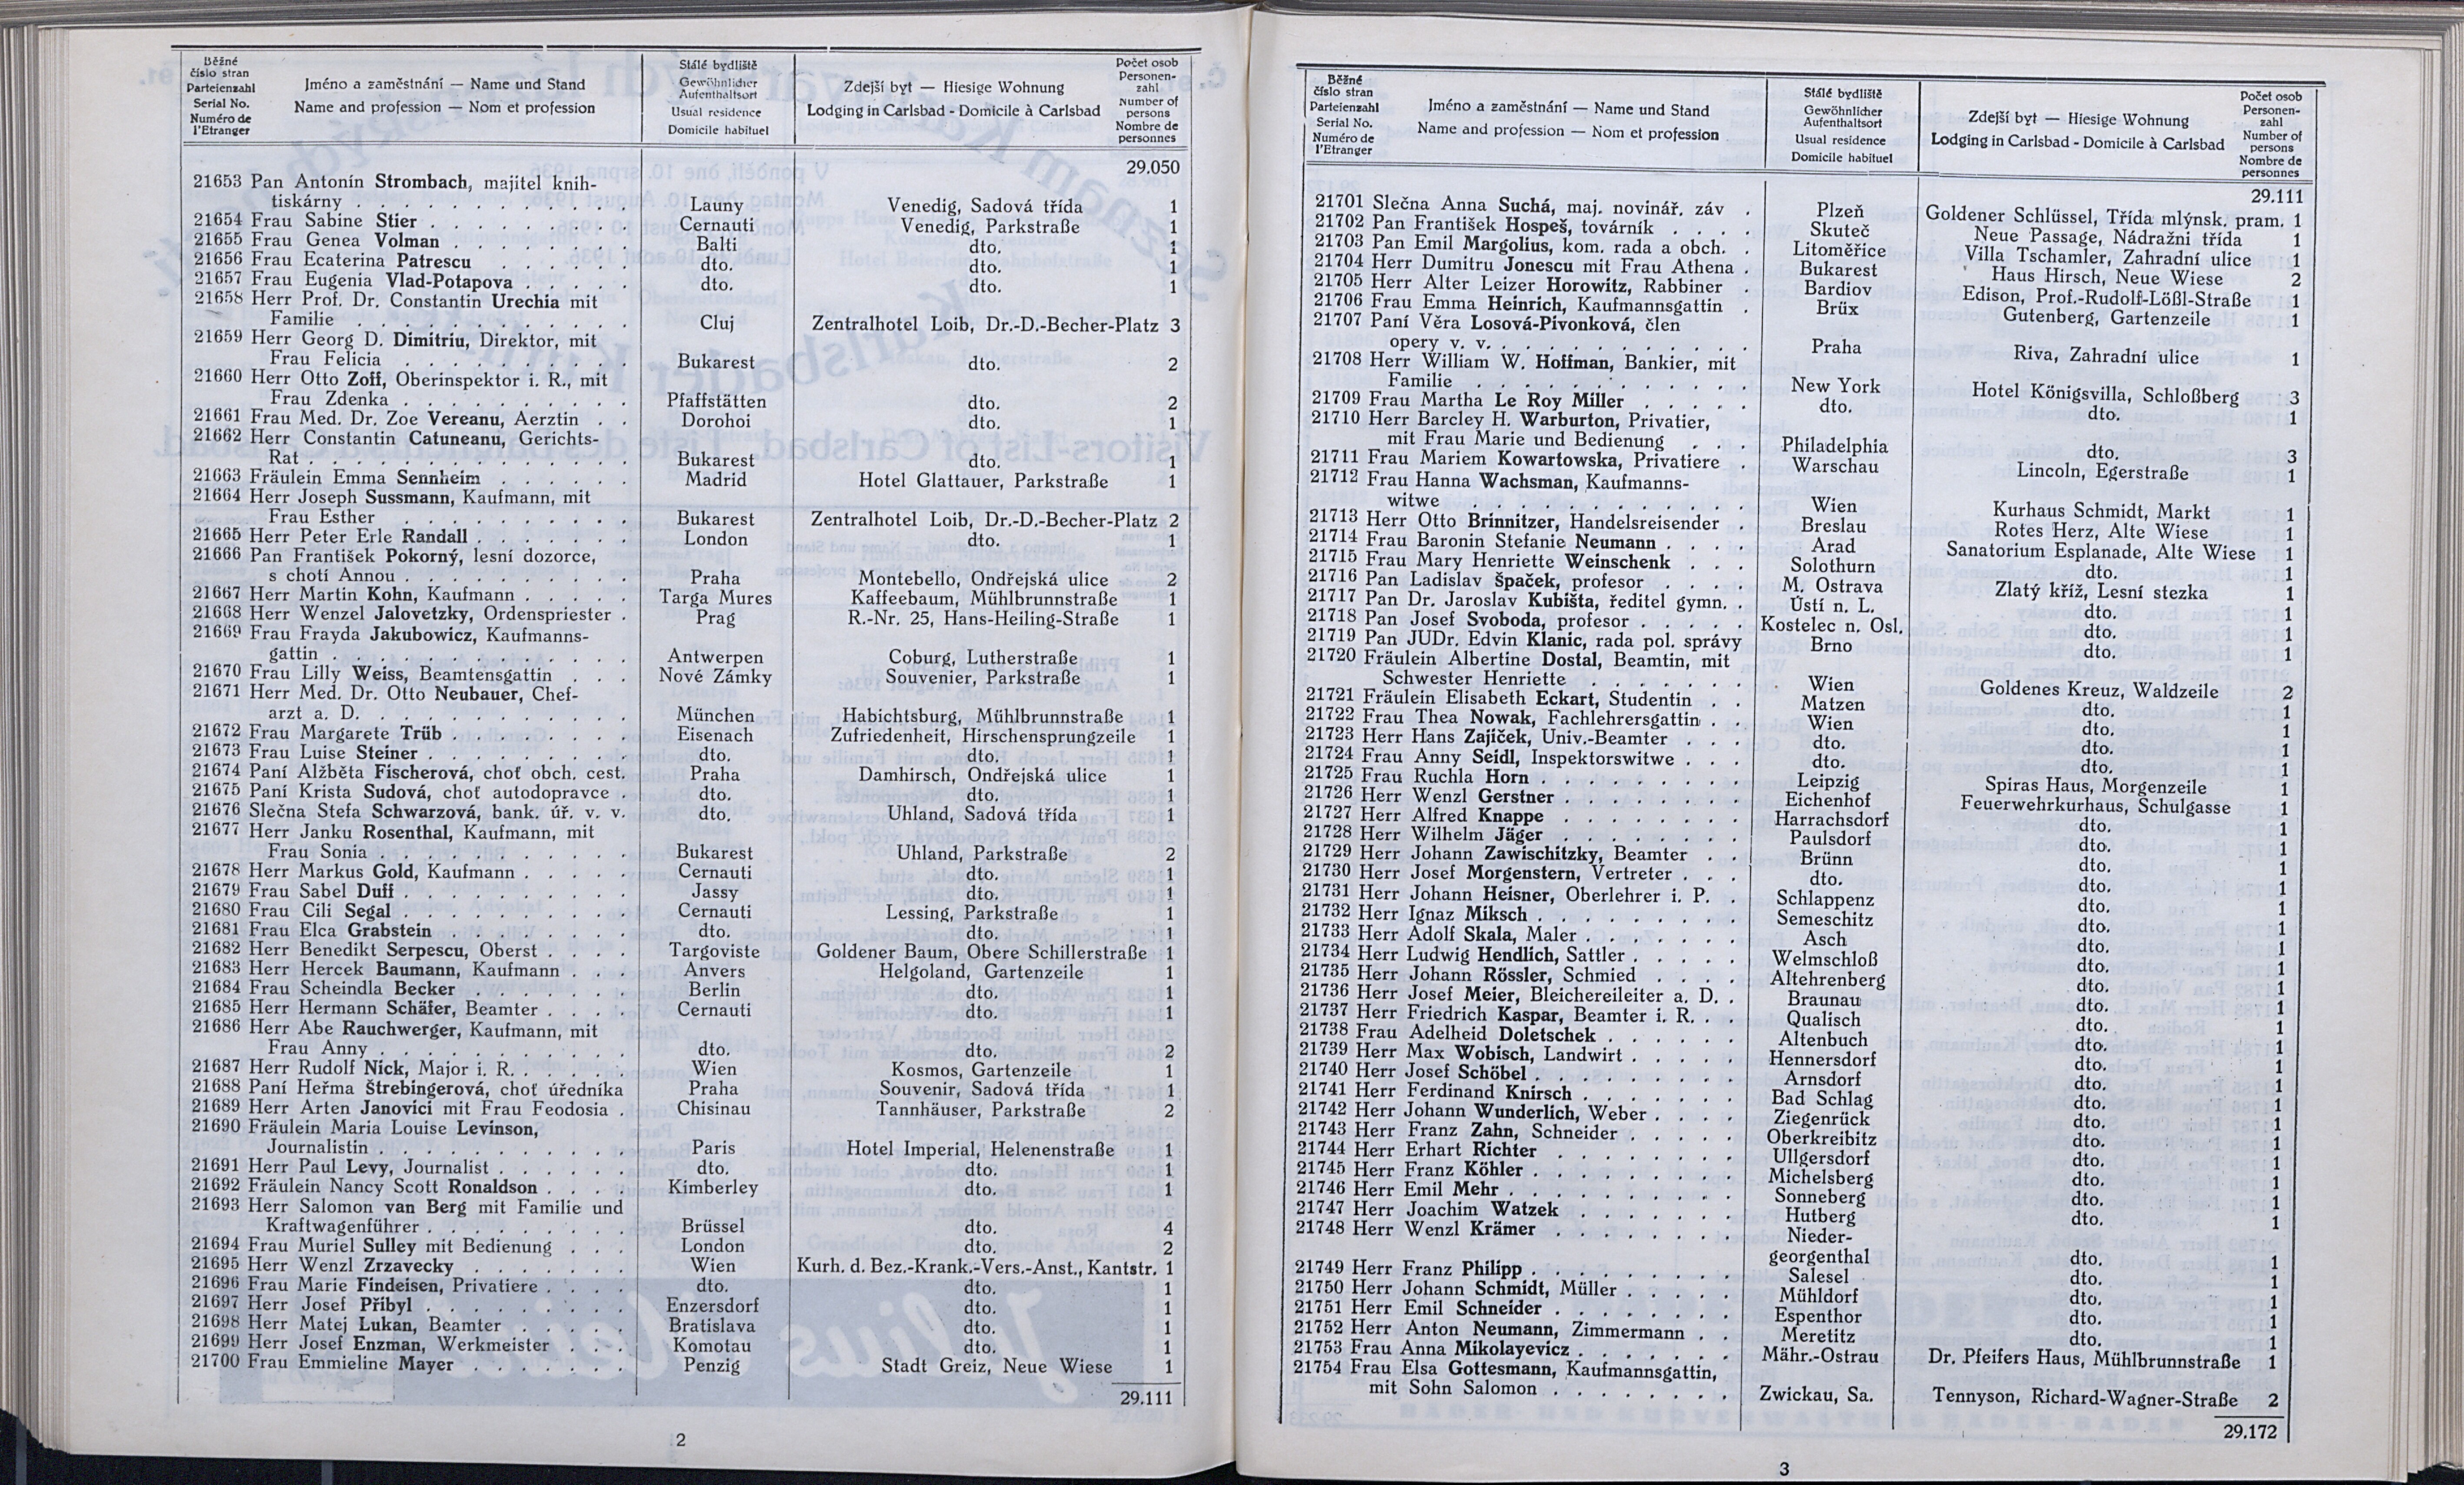 Běžné
číslo stran
Parteienzahl
Serial No.
Numéro de
l'Etranger
Jméno a zaměstnání — Name und Stand
Name and profession — Nom et profession
Stálé bydliště
Gewöhnlicher
Aufenthaltsort
Usual residence
Domicile habituel
Zdejší byt — Hiesige Wohnung
Lodging in Carlsbad - Domicile à Carlsbad
Počet osob
Personen-
zahl
Number of
persons
Nombre de
personnes
29.050
21653 Pan Antonín Strombach, majitel knih-
tiskárny . . . Launy Venedig, Sadová třída 1
21654 Frau Sabine Stier . . . Cernauti Venedig, Parkstraße 1
21655 Frau Genea Volman . . . Balti dto. 1
21656 Frau Ecaterina Patrescu . . . dto. dto. 1
21657 Frau Eugenia Vlad-Potapova . . . dto. dto. 1
21658 Herr Prof. Dr. Constantin Urechia mit
Familie . . . Cluj Zentralhotel Loib, Dr.-D.-Becher-Platz 3
21659 Herr Georg D. Dimitriu, Direktor, mit
Frau Felicia . . . Bukarest dto. 2
21660 Herr Otto Zoff, Oberinspektor i. R., mit
Frau Zdenka . . . Pfaffstätten dto. 2
21661 Frau Med. Dr. Zoe Vereanu, Aerztin . . Dorohoi dto. 1
21662 Herr Constantin Catuneanu, Gerichts-
Rat . . . Bukarest dto. 1
21663 Fräulein Emma Sennheim . . . Madrid Hotel Glattauer, Parkstraße 1
21664 Herr Joseph Sussmann, Kaufmann, mit
Frau Esther . . . Bukarest Zentralhotel Loib, Dr.-D.-Becher-Platz 2
21665 Herr Peter Erle Randall . . . London dto. 1
21666 Pan František Pokorný, lesní dozorce,
s chotí Annou . . . Praha Montebello, Ondřejská ulice 2
21667 Herr Martin Kohn, Kaufmann . . . Targa Mures Kaffeebaum, Mühlbrunnstraße 1
21668 Herr Wenzel Jalovetzky, Ordenspriester . Prag R.-Nr. 25, Hans-Heiling-Straße 1
21669 Frau Frayda Jakubowicz, Kaufmanns-
gattin . . . Antwerpen Coburg, Lutherstraße 1
21670 Frau Lilly Weiss, Beamtensgattin . . . Nové Zámky Souvenier, Parkstraße 1
21671 Herr Med. Dr. Otto Neubauer, Chef-
arzt a. D. . . . München Habichtsburg, Mühlbrunnstraße 1
21672 Frau Margarete Trüb . . . Eisenach Zufriedenheit, Hirschensprungzeile 1
21673 Frau Luise Steiner . . . dto. dto. 1
21674 Paní Alžběta Fischerová, choť obch. cest. Praha Damhirsch, Ondřejská ulice 1
21675 Paní Krista Sudová, choť autodopravce . dto. dto. 1
21676 Slečna Stefa Schwarzová, bank. úř. v. v. dto. Uhland, Sadová třída 1
21677 Herr Janku Rosenthal, Kaufmann, mit
Frau Sonia . . . Bukarest Uhland, Parkstraße 2
21678 Herr Markus Gold, Kaufmann . . . Cernauti dto. 1
21679 Frau Sabel Duff . . . Jassy dto. 1
21680 Frau Cili Segal . . . Cernauti Lessing, Parkstraße 1
21681 Frau Elca Grabstein . . . dto. dto. 1
21682 Herr Benedikt Serpescu, Oberst . . . Targoviste Goldener Baum, Obere Schillerstraße 1
21683 Herr Hercek Baumann, Kaufmann . . . Anvers Helgoland, Gartenzeile 1
21684 Frau Scheindla Becker . . . Berlin dto. 1
21685 Herr Hermann Schäfer, Beamter . . . Cernauti dto. 1
21686 Herr Abe Rauchwerger, Kaufmann, mit
Frau Anny . . . dto. dto. 2
21687 Herr Rudolf Nick, Major i. R. . . . Wien Kosmos, Gartenzeile 1
21688 Paní Heřma Štrebingerová, choť úředníka Praha Souvenir, Sadová třída 1
21689 Herr Arten Janovici mit Frau Feodosia . Chisinau Tannhäuser, Parkstraße 2
21690 Fräulein Maria Louise Levinson,
Journalistin . . . Paris Hotel Imperial, Helenenstraße 1
21691 Herr Paul Levy, Journalist . . . dto. dto. 1
21692 Fräulein Nancy Scott Ronaldson . . . Kimberley dto. 1
21693 Herr Salomon van Berg mit Familie und
Kraftwagenführer . . . Brüssel dto. 4
21694 Frau Muriel Sulley mit Bedienung . . . London dto. 2
21695 Herr Wenzl Zrzavecky . . . Wien Kurh. d. Bez.-Krank.-Vers.-Anst., Kantstr. 1
21696 Frau Marie Findeisen, Privatiere . . . dto. dto. 1
21697 Herr Josef Příbyl . . . Enzersdorf dto. 1
21698 Herr Matej Lukan, Beamter . . . Bratislava dto. 1
21699 Herr Josef Enzman, Werkmeister . . . Komotau dto. 1
21700 Frau Emmieline Mayer . . . Penzig Stadt Greiz, Neue Wiese 1
29.111
2
Běžné
číslo stran
Parteienzahl
Serial No.
Numéro de
l'Etranger
Jméno a zaměstnání — Name und Stand
Name and profession — Nom et profession
Stálé bydliště
Gewöhnlicher
Aufenthaltsort
Usual residence
Domicile habituel
Zdejší byt — Hiesige Wohnung
Lodging in Carlsbad - Domicile à Carlsbad
Počet osob
Personen-
zahl
Number of
persons
Nombre de
personnes
29.111
21701 Slečna Anna Suchá, maj. novinář. záv . Plzeň Goldener Schlüssel, Třída mlýnsk. pram. 1
21702 Pan František Hospeš, továrník . . . Skuteč Neue Passage, Nádražní třída 1
21703 Pan Emil Margolius, kom. rada a obch. . Litoměřice Villa Tschamler, Zahradní ulice 1
21704 Herr Dumitru Jonescu mit Frau Athena . Bukarest Haus Hirsch, Neue Wiese 2
21705 Herr Alter Leizer Horowitz, Rabbiner . Bardiov Edison, Prof.-Rudolf-Lößl-Straße 1
21706 Frau Emma Heinrich, Kaufmannsgattin . Brüx Gutenberg, Gartenzeile 1
21707 Paní Věra Losová-Pivonková, člen
opery v. v. . . . Praha Riva, Zahradní ulice 1
21708 Herr William W. Hoffman, Bankier, mit
Familie . . . New York Hotel Königsvilla, Schloßberg 3
21709 Frau Martha Le Roy Miller . . . dto. dto. 1
21710 Herr Barcley H. Warburton, Privatier,
mit Frau Marie und Bedienung . . . Philadelphia dto. 3
21711 Frau Mariem Kowartowska, Privatiere . Warschau Lincoln, Egerstraße 1
21712 Frau Hanna Wachsman, Kaufmanns-
witwe . . . Wien Kurhaus Schmidt, Markt 1
21713 Herr Otto Brinnitzer, Handelsreisender . Breslau Rotes Herz, Alte Wiese 1
21714 Frau Baronin Stefanie Neumann . . . Arad Sanatorium Esplanade, Alte Wiese 1
21715 Frau Mary Henriette Weinschenk . . . Solothurn dto. 1
21716 Pan Ladislav Špaček, profesor . . . M. Ostrava Zlatý kříž, Lesní stezka 1
21717 Pan Dr. Jaroslav Kubišta, ředitel gymn. . Ústí n. L. dto. 1
21718 Pan Josef Svoboda, profesor . . . Kostelec n. Osl. dto. 1
21719 Pan JUDr. Edvin Klanic, rada pol. správy Brno dto. 1
21720 Fräulein Albertine Dostal, Beamtin, mit
Schwester Henriette . . . Wien Goldenes Kreuz, Waldzeile 2
21721 Fräulein Elisabeth Eckart, Studentin . . Matzen dto. 1
21722 Frau Thea Nowak, Fachlehrersgattin . . Wien dto. 1
21723 Herr Hans Zajíček, Univ.-Beamter . . . dto. dto. 1
21724 Frau Anny Seidl, Inspektorswitwe . . . dto. dto. 1
21725 Frau Ruchla Horn . . . Leipzig Spiras Haus, Morgenzeile 1
21726 Herr Wenzl Gerstner . . . Eichenhof Feuerwehrkurhaus, Schulgasse 1
21727 Herr Alfred Knappe . . . Harrachsdorf dto. 1
21728 Herr Wilhelm Jäger . . . Paulsdorf dto. 1
21729 Herr Johann Zawischitzky, Beamter . . Brünn dto. 1
21730 Herr Josef Morgenstern, Vertreter . . . dto. dto. 1
21731 Herr Johann Heisner, Oberlehrer i. P. . Schlappenz dto. 1
21732 Herr Ignaz Miksch . . . Semeschitz dto. 1
21733 Herr Adolf Skala, Maler . . . Asch dto. 1
21734 Herr Ludwig Hendlich, Sattler . . . Welmschloß dto. 1
21735 Herr Johann Rössler, Schmied . . . Altehrenberg dto. 1
21736 Herr Josef Meier, Bleichereileiter a. D. . Braunau dto. 1
21737 Herr Friedrich Kaspar, Beamter i. R. . . Qualisch dto. 1
21738 Frau Adelheid Doletschek . . . Altenbuch dto. 1
21739 Herr Max Wobisch, Landwirt . . . Hennersdorf dto. 1
21740 Herr Josef Schöbel . . . Arnsdorf dto. 1
21741 Herr Ferdinand Knirsch . . . Bad Schlag dto. 1
21742 Herr Johann Wunderlich, Weber . . . Ziegenrück dto. 1
21743 Herr Franz Zahn, Schneider . . . Oberkreibitz dto. 1
21744 Herr Erhart Richter . . . Ullgersdorf dto. 1
21745 Herr Franz Köhler . . . Michelsberg dto. 1
21746 Herr Emil Mehr . . . Sonneberg dto. 1
21747 Herr Joachim Watzek . . . Hutberg dto. 1
21748 Herr Wenzl Krämer . . . Nieder-
georgenthal dto. 1
21749 Herr Franz Philipp . . . Salesel dto. 1
21750 Herr Johann Schmidt, Müller . . . Mühldorf dto. 1
21751 Herr Emil Schneider . . . Espenthor dto. 1
21752 Herr Anton Neumann, Zimmermann . . Meretitz dto. 1
21753 Frau Anna Mikolayevicz . . . Mähr.-Ostrau Dr. Pfeifers Haus, Mühlbrunnstraße 1
21754 Frau Elsa Gottesmann, Kaufmannsgattin,
mit Sohn Salomon . . . Zwickau, Sa. Tennyson, Richard-Wagner-Straße 2
29.172
3